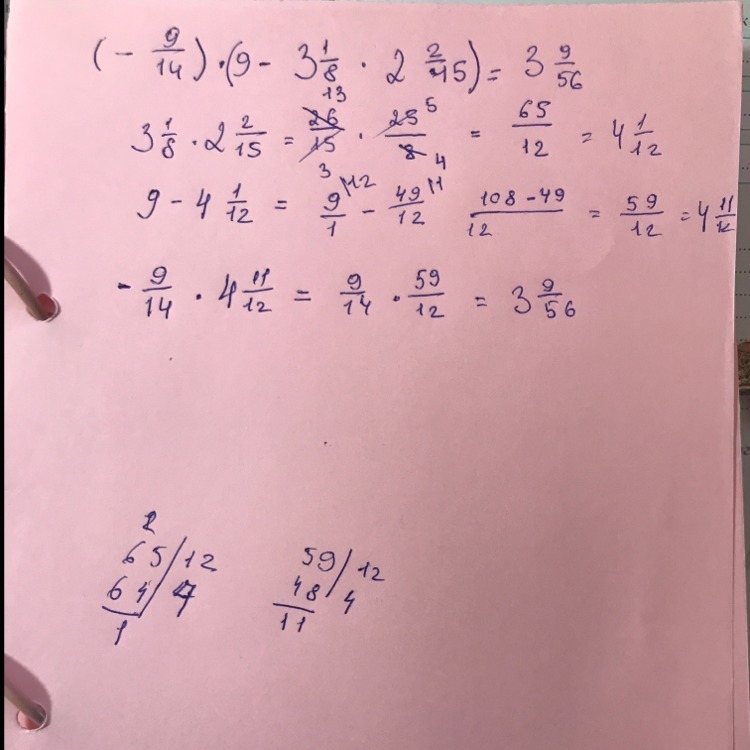 (- 9/14) · (9 - 3 1/8 · 2 2/15) = 3 9/56
3 1/8 · 2 2/15 = 26/15 · 25/8 = 65/12 = 4 1/12
13 5
3 4
9 - 4 1/12 = 9/1 - 49/12 108-49/12 = 59/12 = 4 11/12
\12 \1
- 9/14 · 4 11/12 = 9/14 · 59/12 = 3 9/56
65/12 59/12
64 4 48 4
1 11